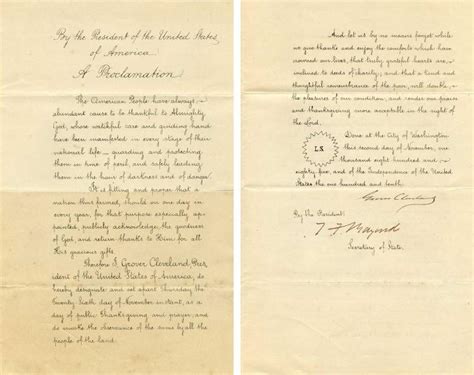 By the President of the United States
of America.
A Proclamation.
The American People have always
abundant cause to be thankful to Almighty
God, whose watchful care and guiding hand
have been manifested in every stage of their
national life — guarding and protecting
them in time of peril, and safely leading
them in the hour of darkness and of danger.
It is fitting and proper that a
nation thus favored, should on one day in
every year, for that purpose especially ap-
pointed, publicly acknowledge the goodness
of God, and return thanks to Him for all
His gracious gifts.
Therefore I, Grover Cleveland, Pres-
ident of the United States of America, do
hereby designate and set apart Thursday the
Twenty Sixth day of November instant, as a
day of public Thanksgiving and prayer; and
do invoke the observance of the same by all the
people of the land.
And let us by no means forget while
we give thanks and enjoy the comforts which have
crowned our lives, that truly grateful hearts are
inclined to deeds of charity; and that a kind and
thoughtful remembrance of the poor, will double
the pleasures of our condition, and render our praise
and thanksgiving more acceptable in the sight of
the Lord.
L.S.
Done at the City of Washington
this second day of November, one
thousand eight hundred and
eighty five, and of the Independence of the United
States the one hundred and tenth.
Grover Cleveland
By the President:
T F Bayard
Secretary of State.